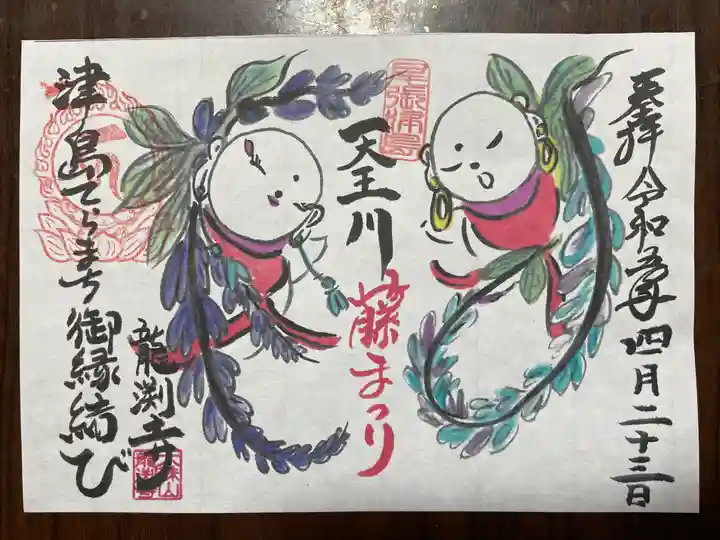 奉拝 令和五年四月二十三日
尾張津島
天王川
藤まつり
龍渕寺
津島てらまち御縁結び